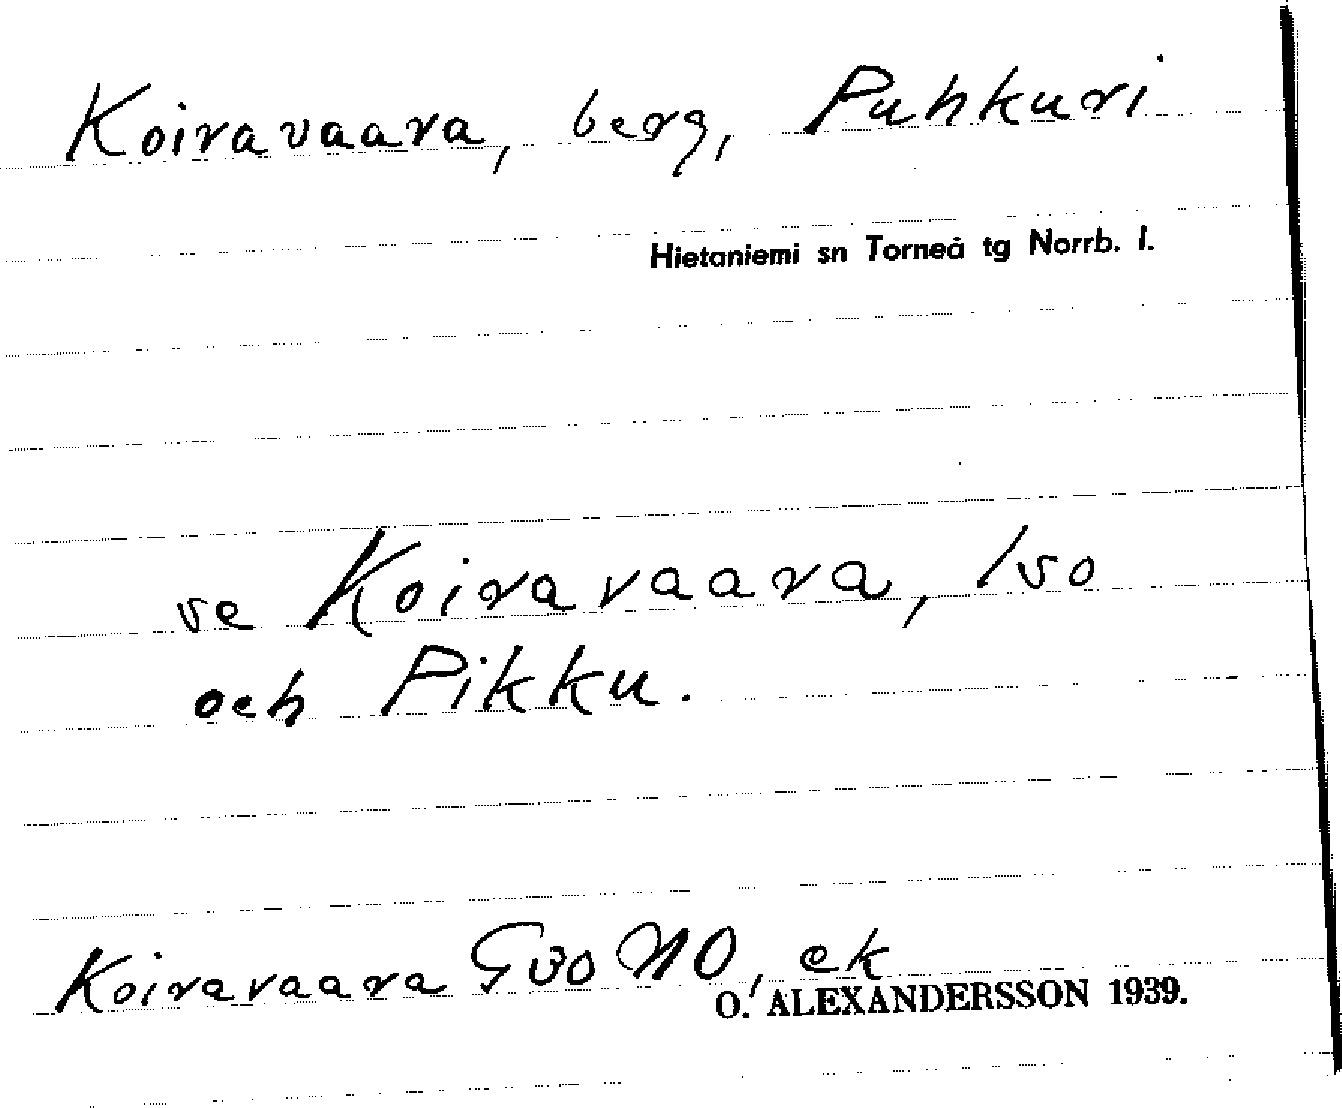 Koiravaara, berg, Puhkuri
Hietaniemi sn Torneå tg Norrb. l.
se Koiravaara, Iso
och Pikku.
Koiravaara G30 NO, ek
O. ALEXANDERSSON 1939.